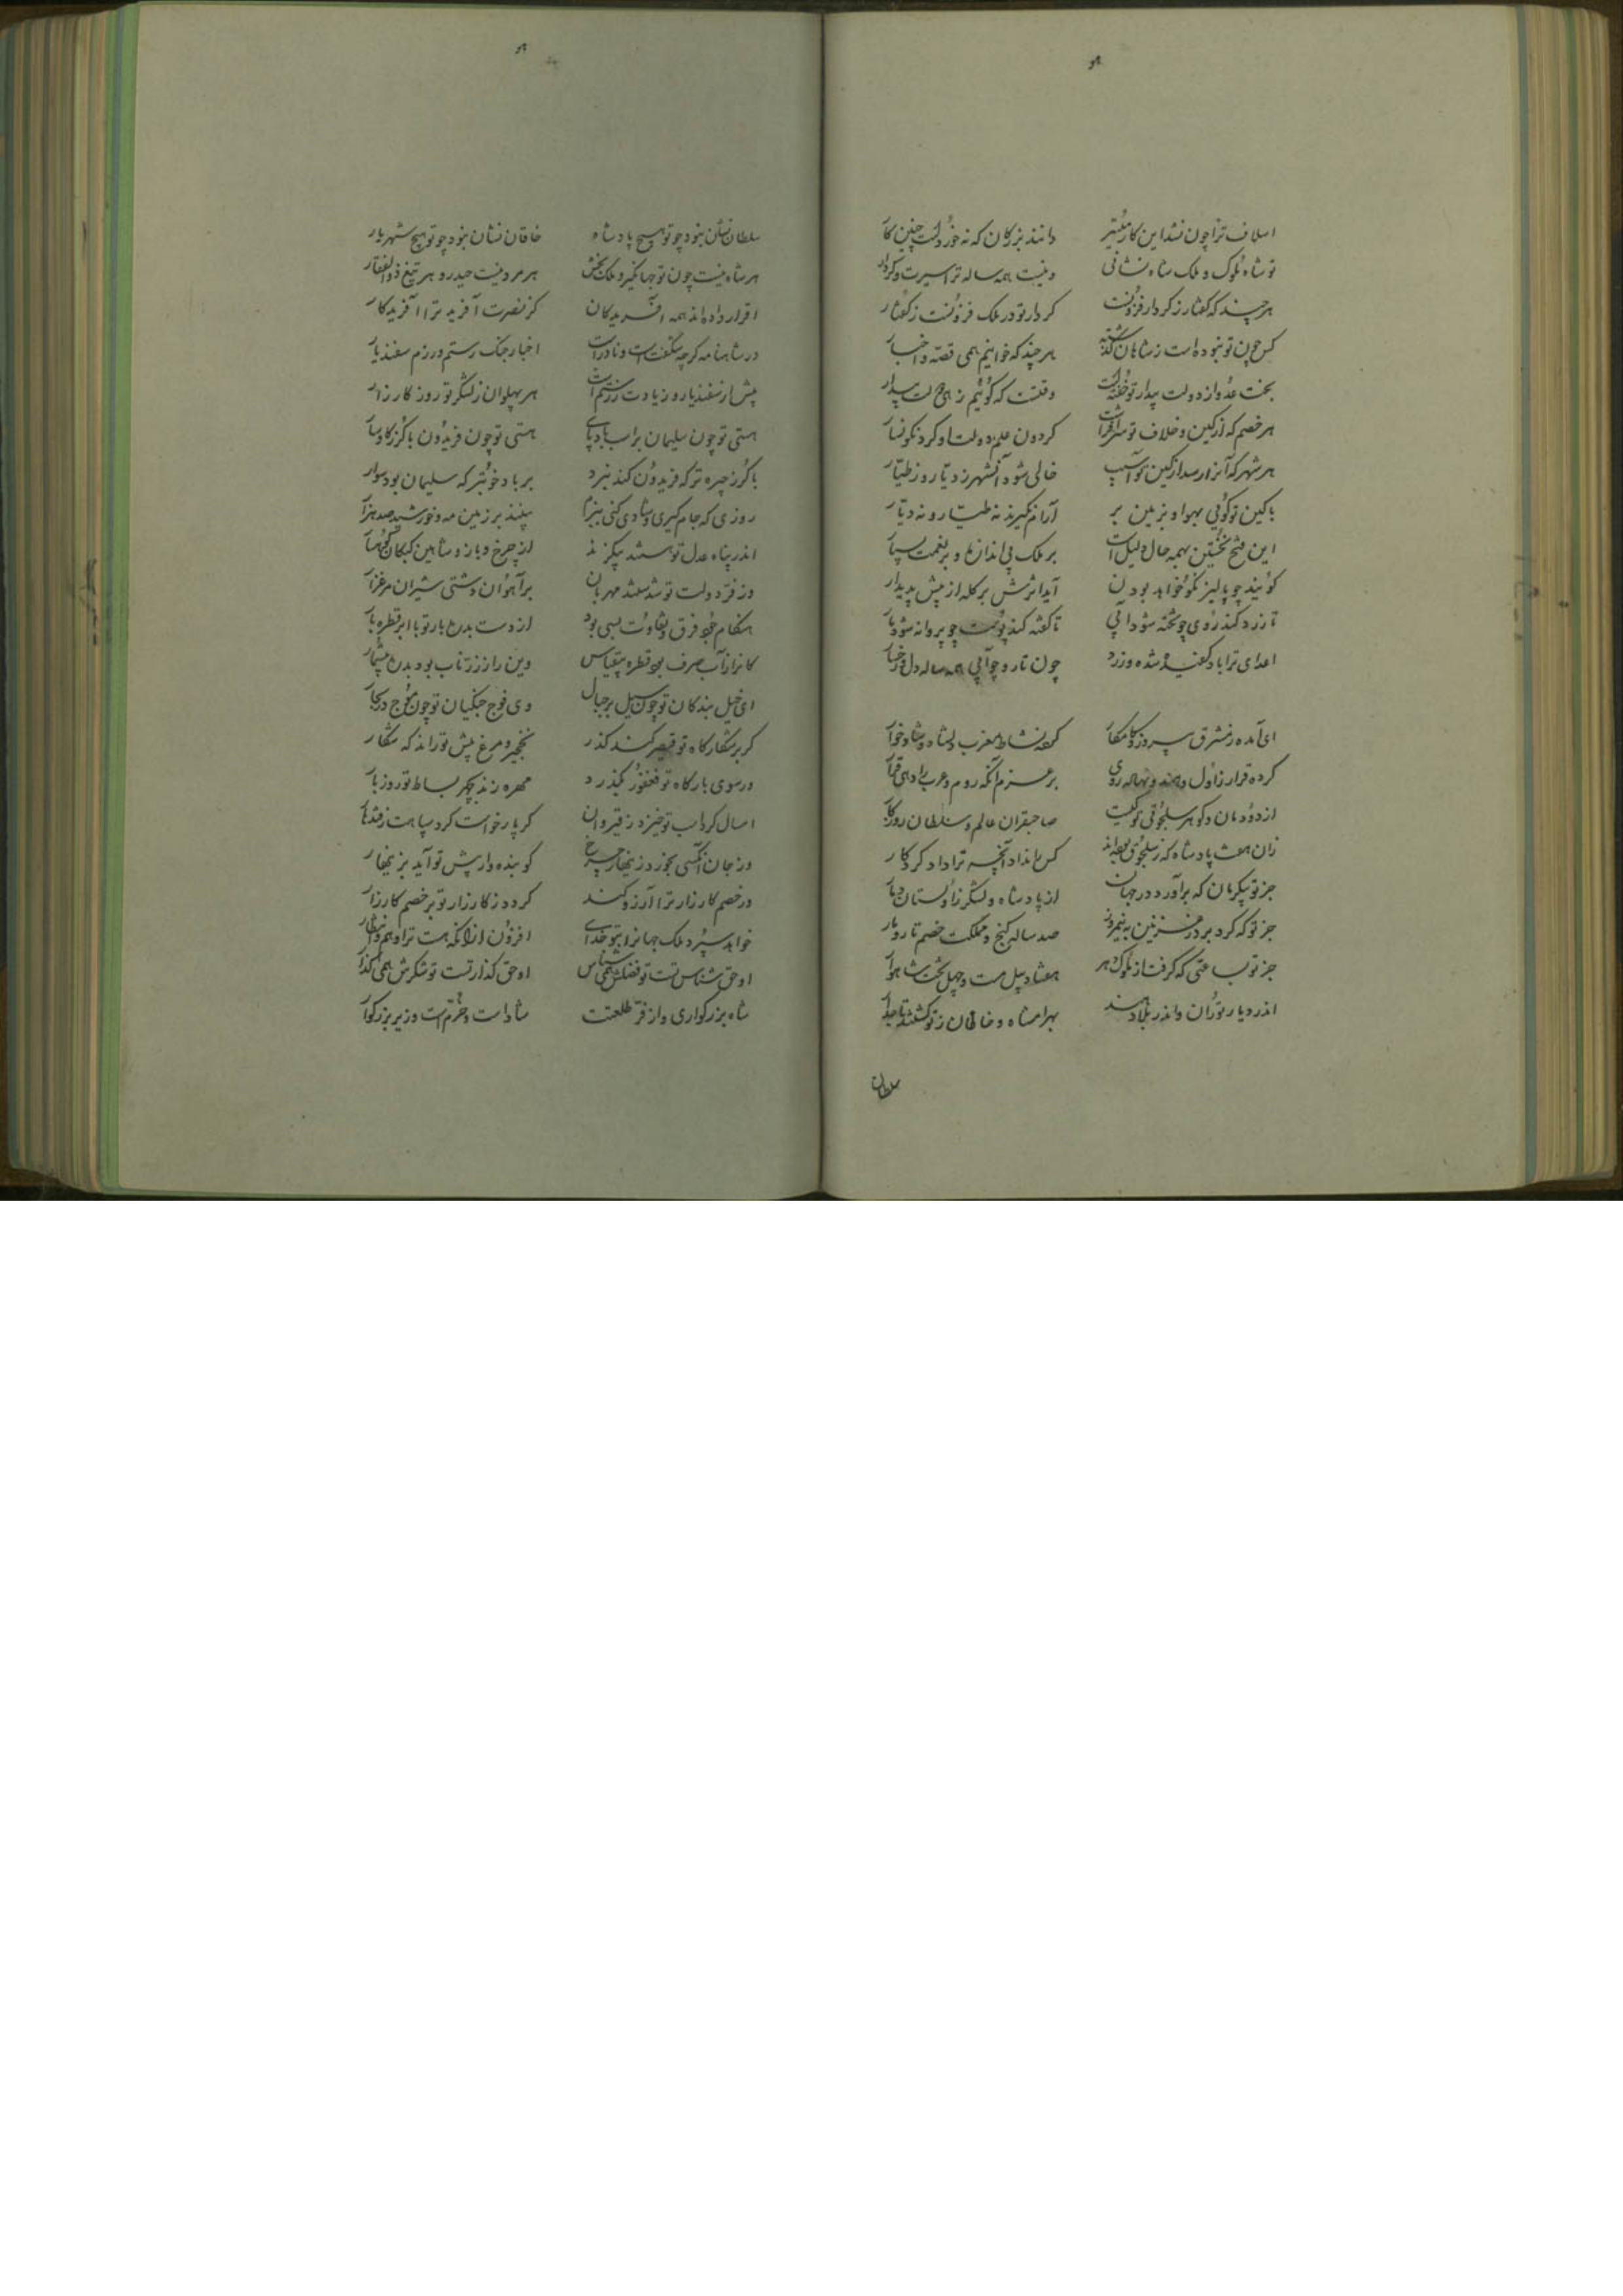 اسلاف ترا چون نشد این کار میسر
دانند بزرگان که نه خردست چنین کار
تو شاه ملوک و ملک شاه نشانی
وینست همه ساله ترا سیرت و کردار
هر چند که گفتار ز کردار فزونست
کردار تو در ملک فزونست ز گفتار
کس چون تو نبوده است ز شاهان گذشته
هر چند که خوانیم همی قصه و اخبار
بخت عدو از دولت بیدار تو خفته است
وقتست که گوئیم زهی دولت بیدار
هر خصم که از کین و خلاف تو سر افراشت
گردون علم دولت او کرد نگونسار
هر شهر که آنرا رسد از کین تو آسیب
خالی شود آنشهر ز دیار و ز طیار
با کین تو گوئی بهوا و بزمین بر
آرام نگیرند نه طیار و نه دیار
این فتح نخستین بهمه حال دلیل است
بر ملک بی اندازه و بر نعمت بسیار
گویند چو پالیز نکو خواهد بودن
آید اثرش بر کله از پیش پدیدار
تا زرد کند روی چو پخته شود آبی
تا کفته کند پوست چو پروانه شود نار
اعدای ترا باد کفیده شده و زرد
چون نار و چو آبی همه ساله دل و رخسار
ای آمده ز مشرق پیروز و کامکار
کرده نشاط مغرب دلشاد و شادخوار
کرده قرار زاول و هند و نهاله روی
بر عزم آنکه روم و عرب را دهی قرار
از دودمان و گوهر سلجوق تو کیست
صاحبقران عالم و سلطان روزگار
زان هشت پادشاه که ز سلجوق بوده‌اند
کس را نداد آنچه ترا داد کردگار
جز تو بیکزمان که برآورد در جهان
از پادشاه و لشکر زاولستان دمار
جز تو که کرد بر در غزنین به نیمروز
صد ساله گنج و مملکت خصم تار و مار
جز تو بساعتی که گرفت از ملوک دهر
هفتاد پیل مست و چهل تخت شاهوار
اندر دیار توران و اندر بلاد هند
بهرامشاه و خاقان ز تو گشتند تاجدار
سلطان
سلطان نشان نبود چو تو هیچ پادشاه
خاقان نشان نبود چو تو هیچ شهریار
هر شاه نیست چون تو جهانگیر و ملک بخش
هر مرد نیست حیدر و هر تیغ ذوالفقار
اقرار داده‌اند همه آفریدگان
کز نصرت آفرید ترا آفریدگار
در شاهنامه گرچه شگفتست و نادرات
اخبار جنگ رستم و رزم سفندیار
پیش از سفندیار و زیادت ز رستم است
هر پهلوان ز لشکر تو روز کارزار
هستی تو چون سلیمان بر اسب بادپای
هستی تو چون فریدون با گرز گاوسار
با گرز چیره‌تر که فریدون کند نبرد
بر باد خوبتر که سلیمان بود سوار
روزی که جام گیری و شادی کنی ببزم
بینند بر زمین مه و خورشید صد هزار
اندر پناه عدل تو هستند بیگزند
از چرخ و باز و شاهین کبکان کوهسار
وز فر دولت تو شدستند مهربان
بر آهوان دشتی شیران مرغزار
هنگام جود فرق و تفاوت بسی بود
از دست بدره بار تو با ابر قطره بار
کانرا ز آب صرف بود قطره بیقیاس
وین را ز زر ناب بود بدره بیشمار
ای خیل بندگان تو چون سیل بر جبال
وی فوج جنگیان تو چون موج در بحار
گر بر شکارگاه تو قیصر کند گذر
نخجیر و مرغ پیش تو راند گه شکار
ور سوی بارگاه تو فغفور بگذرد
مهره زند بچهر بساط تو روز بار
امسال گرد اسب تو خیزد ز قیروان
گر پار خواست گرد سپاهت ز قندهار
وز جان آنکسی بخورد زینهار چرخ
کو بنده‌وار پیش تو آید بزینهار
ور خصم کارزار ترا آرزو کند
گردد ز کارزار تو بر خصم کار زار
خواهد سپرد ملک جهانرا بتو خدای
افزون از آنکه هست ترا وهم و انتظار
او حق شناس تست تو فضلش همی شناس
او حق گذار تست تو شکرش همی گذار
شاه بزرگواری و از فر طلعتت
شادست و خرم است وزیر بزرگوار